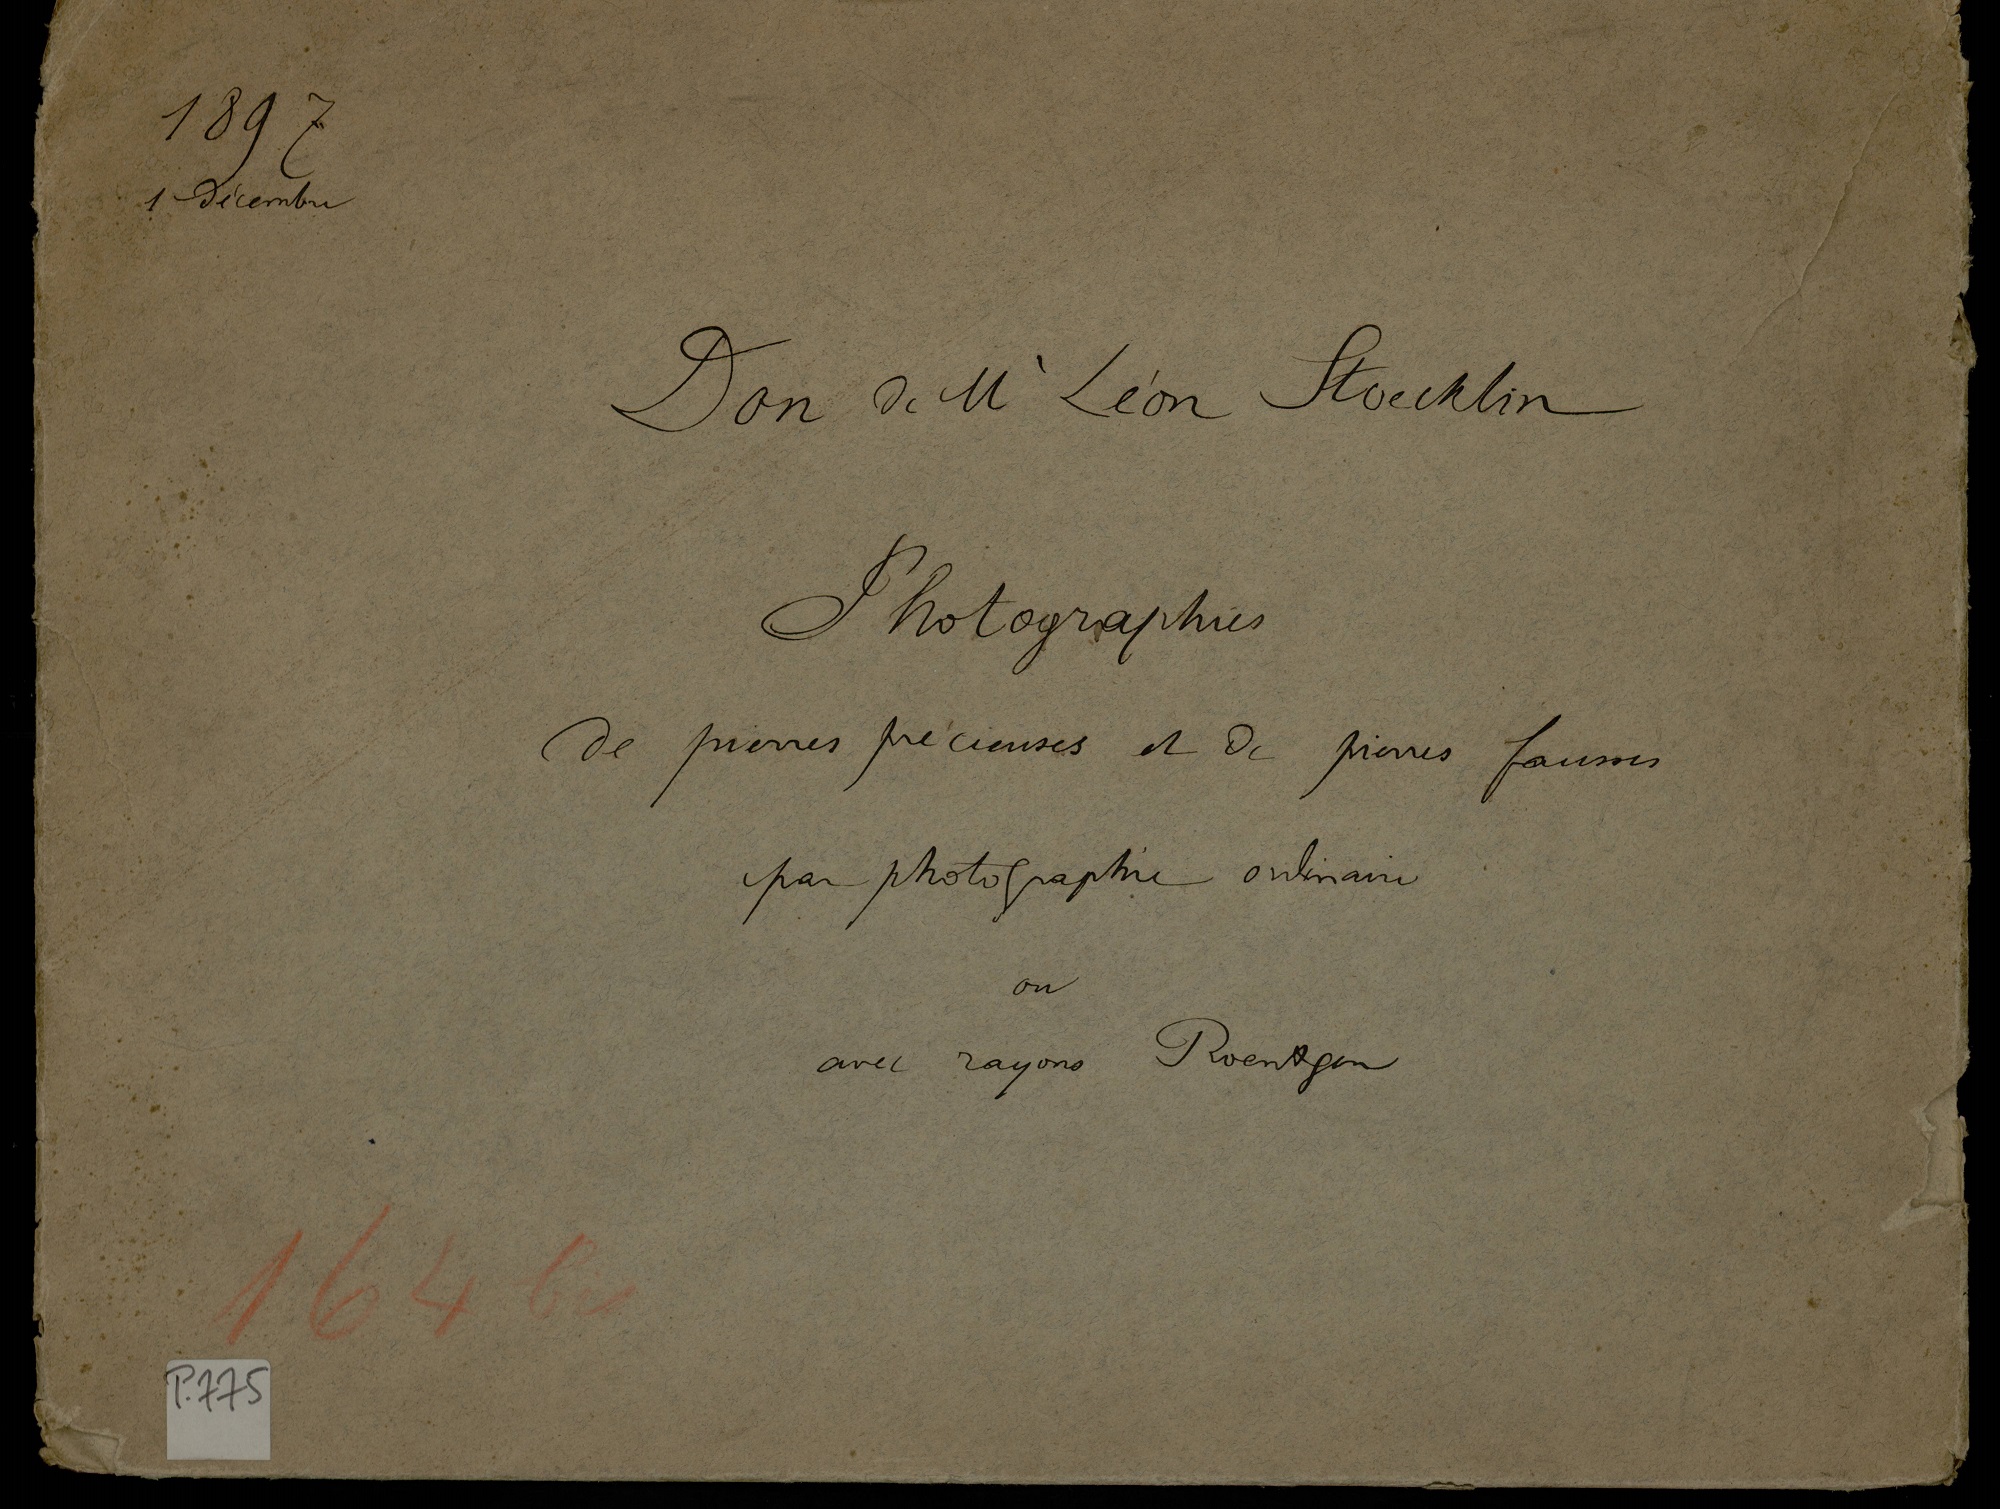 1897
1 Décembre
Don de Mr Léon Stoecklin
Photographies
de pierres précieuses et de pierres fausses
par photographie ordinaire
ou
avec rayons Roentgen
164 bis
P.775